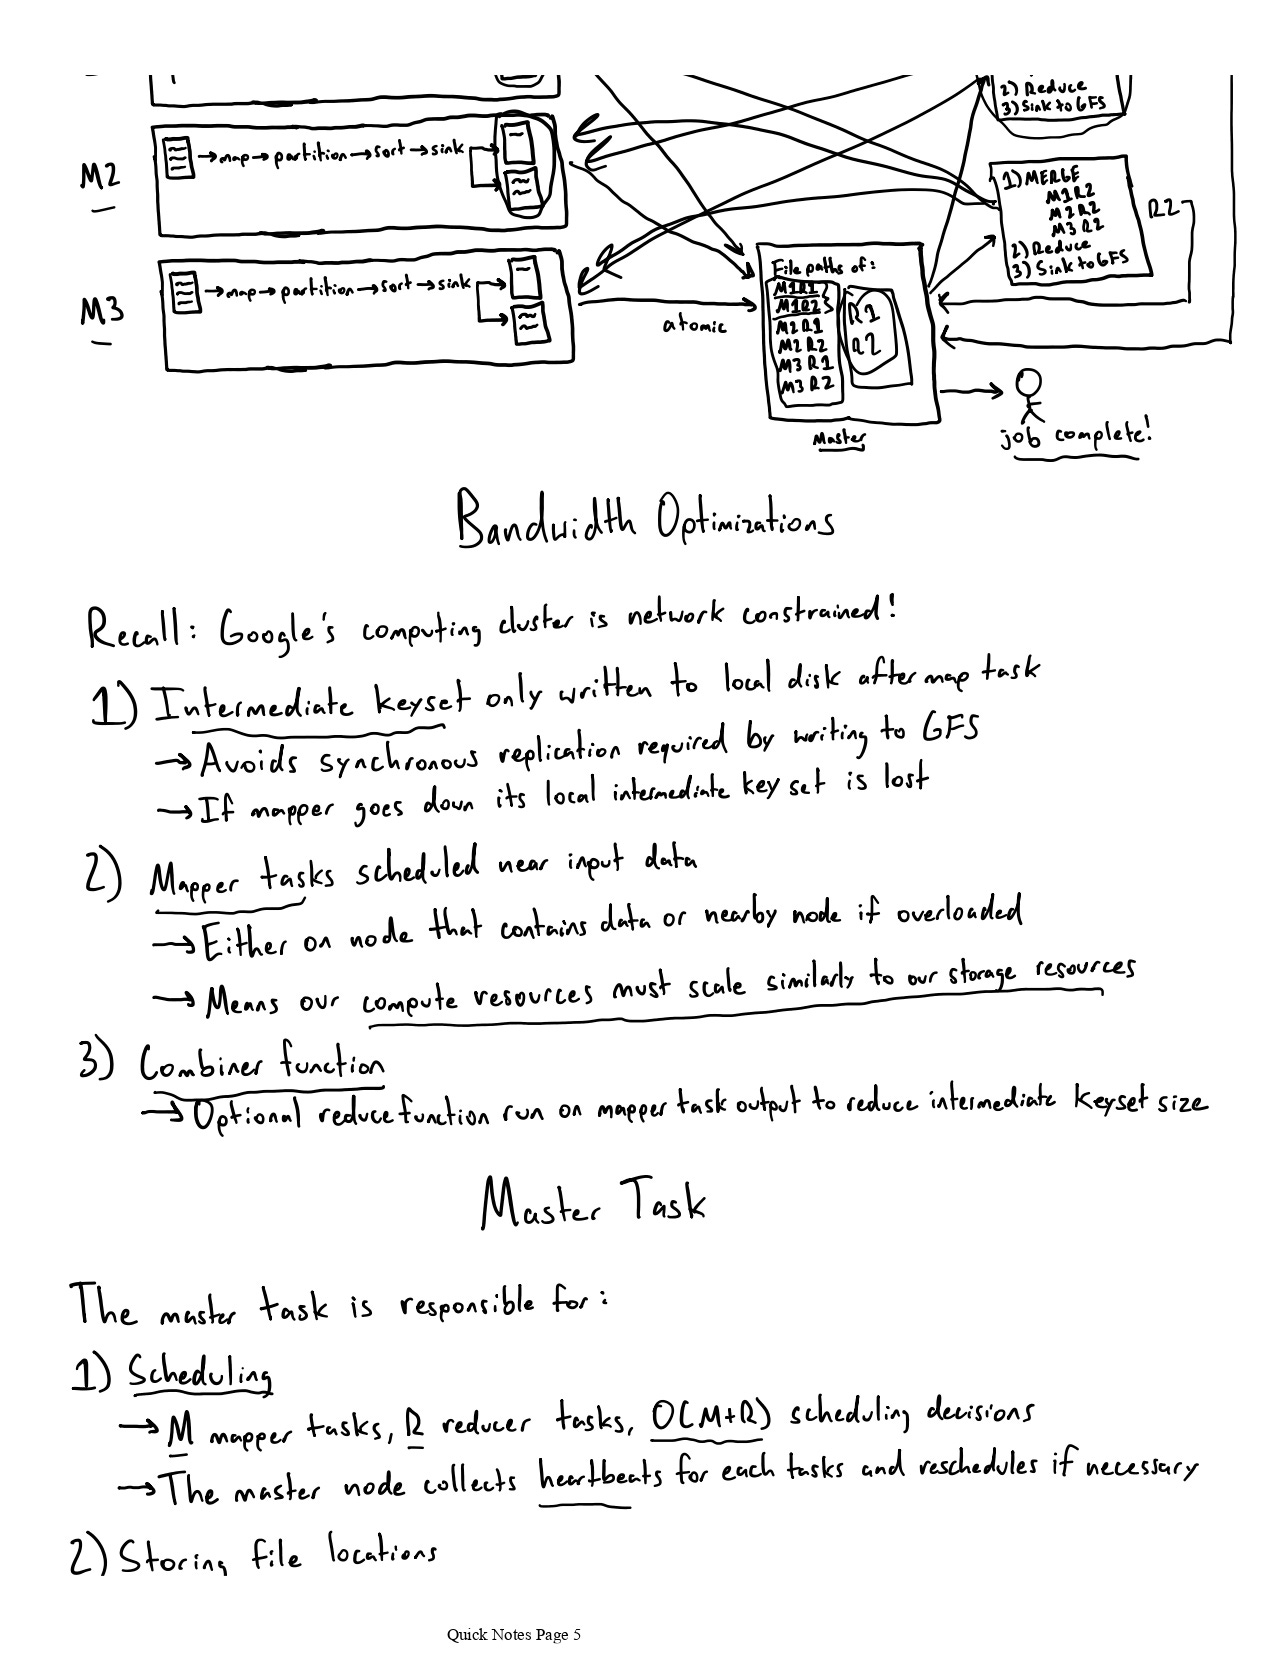 2) Reduce
3) Sink to GFS
M2
→ map → partition → sort → sink
1) MERGE
M1R2
M2R2
M3R2
2) Reduce
3) Sink to GFS
R2
M3
→ map → partition → sort → sink
atomic
File paths of:
M1R1
M1R2
M2R1
M2R2
M3R1
M3R2
R1
R2
Master
job complete!
Bandwidth Optimizations
Recall: Google's computing cluster is network constrained!
1) Intermediate keyset only written to local disk after map task
→ Avoids synchronous replication required by writing to GFS
→ If mapper goes down its local intermediate key set is lost
2) Mapper tasks scheduled near input data
→ Either on node that contains data or nearby node if overloaded
→ Means our compute resources must scale similarly to our storage resources
3) Combiner function
→ Optional reduce function run on mapper task output to reduce intermediate keyset size
Master Task
The master task is responsible for:
1) Scheduling
→ M mapper tasks, R reducer tasks, O(M+R) scheduling decisions
→ The master node collects heartbeats for each tasks and reschedules if necessary
2) Storing file locations
Quick Notes Page 5